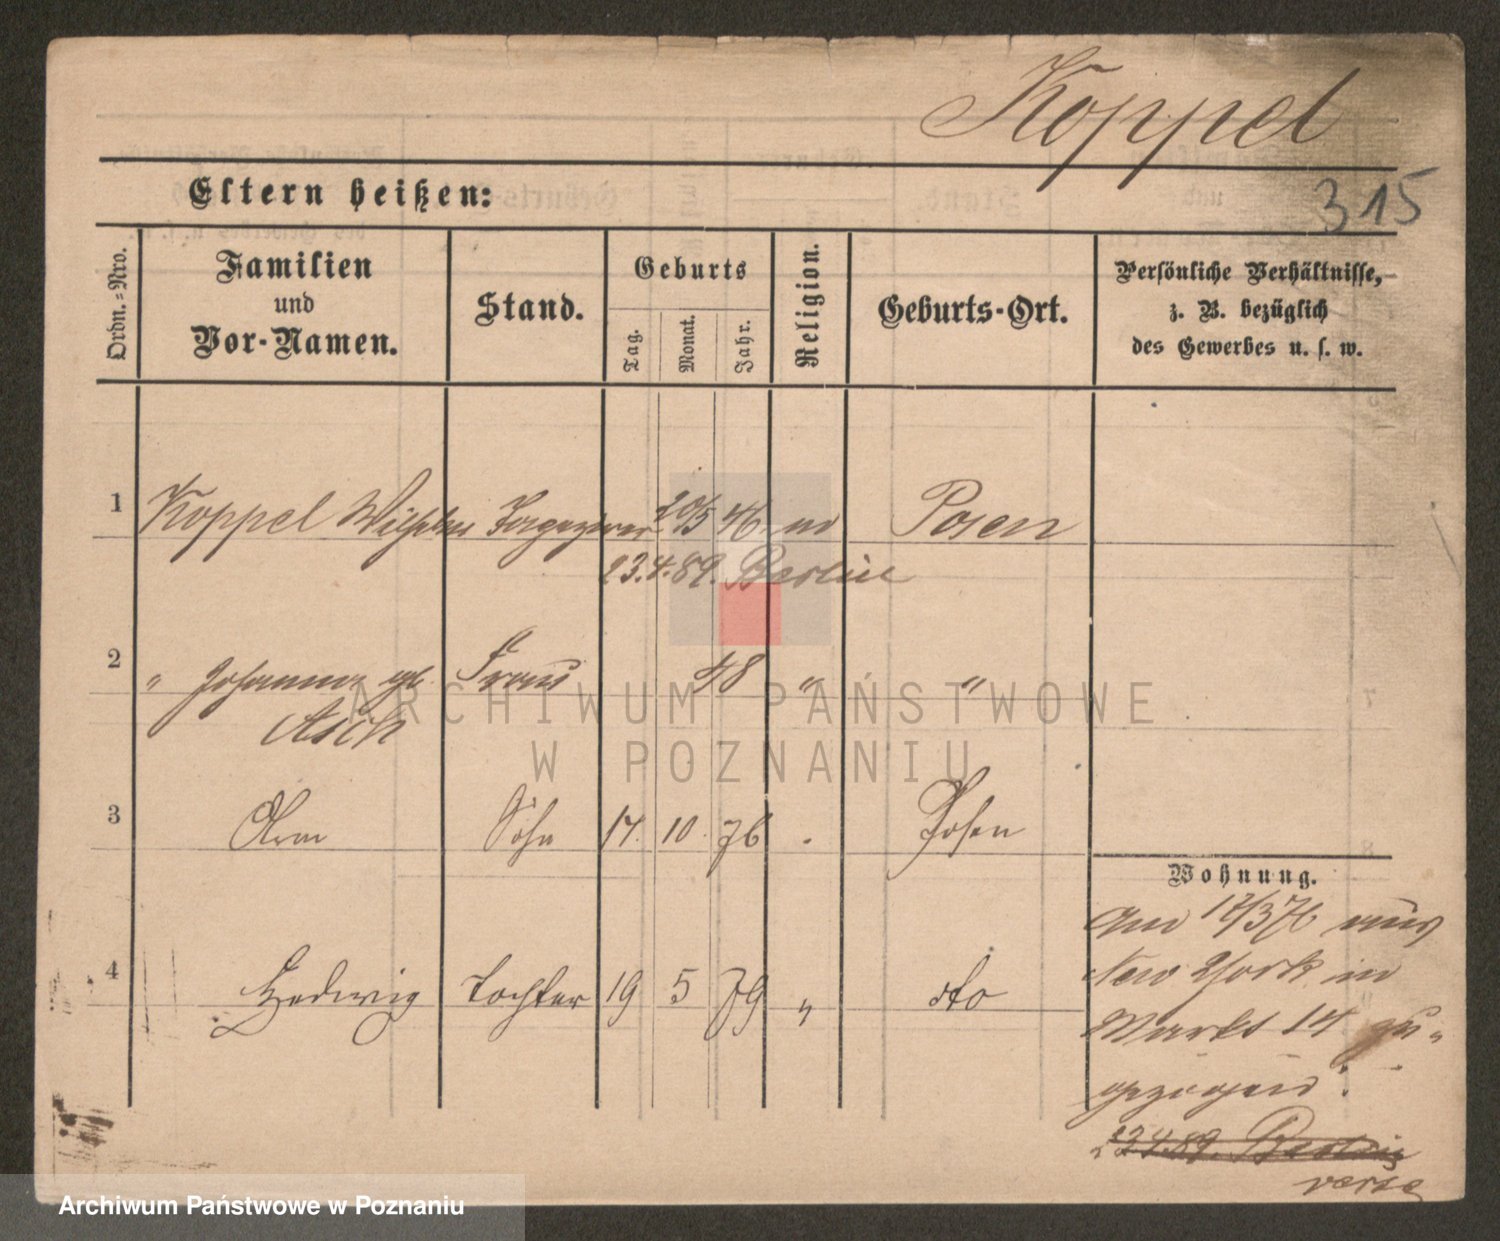 Koppel
Eltern heißen:
315
Ordn.-Nro.
Familien
und
Vor-Namen.
Stand.
Geburts
Tag.
Monat.
Jahr.
Religion.
Geburts-Ort.
Persönliche Verhältnisse,
z. B. bezüglich
des Gewerbes u. s. w.
1 Koppel Wilhelm 20/5 46. Posen
23.4.89. Berlin
2 " Johanna Frau 48 " "
Asch
3 Sohn 17. 10. 76 . Posen
4 Hedwig Tochter 19 5 79 " dto
Wohnung.
Am 12/3 76 aus
New York in
Markt 14 zu-
gezogen.
23.4.89. Berlin
verse
ARCHIWUM PAŃSTWOWE
W POZNANIU
Archiwum Państwowe w Poznaniu